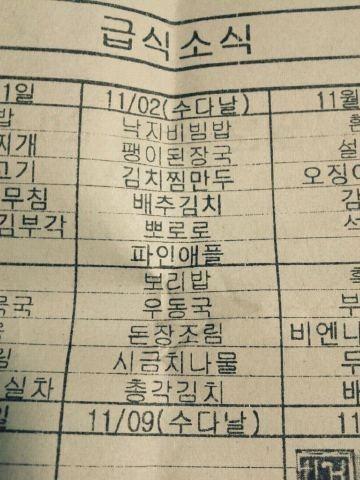 급식소식
1일 11/02(수다날) 11월
밥 낙지비빔밥
찌개 팽이된장국 설
고기 김치찜만두 오징
무침 배추김치
김부각 뽀로로
파인애플
보리밥
국 우동국 부
돈장조림 비엔나
시금치나물
실차 총각김치 배
일 11/09(수다날) 11